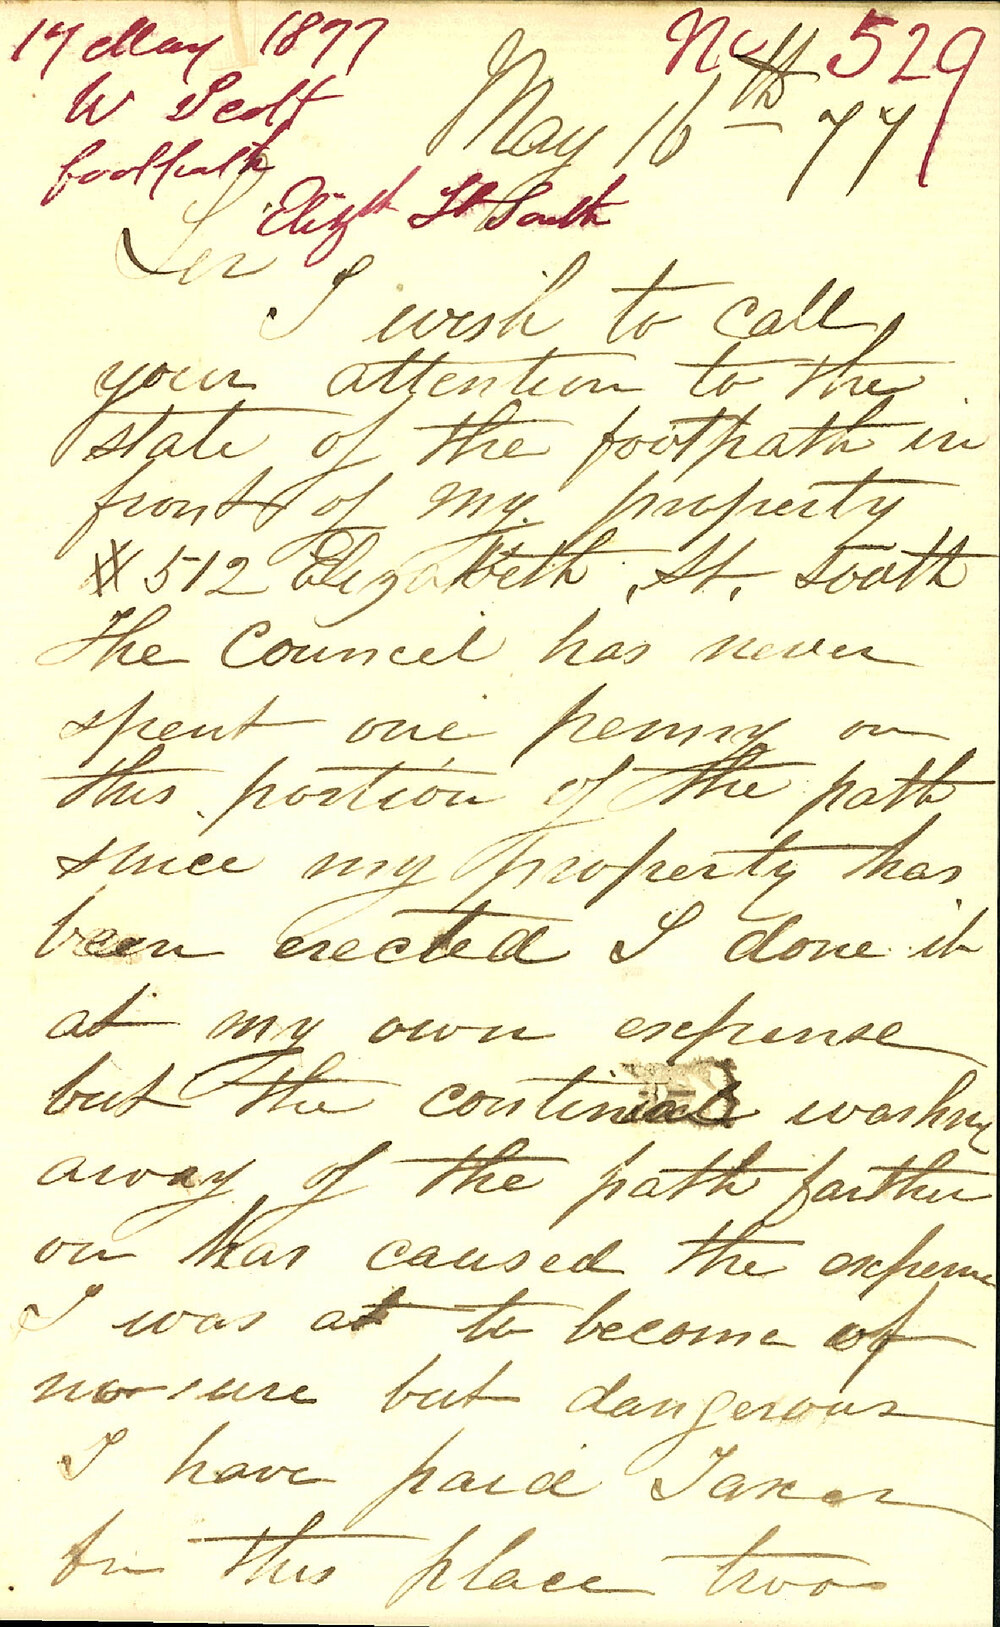 17 May 1877
No 529
W Scott
footpath
Elizth St South
May 16th 77
Sir
I wish to call
your attention to the
state of the footpath in
front of my property
# 512 Elizabeth St. South
The Council has never
spent one penny on
this portion of the path
since my property has
been erected I done it
at my own expense
but the continual washing
away of the path farther
on has caused the expense
I was at to become of
no use but dangerous
I have paid Taxes
for this place two